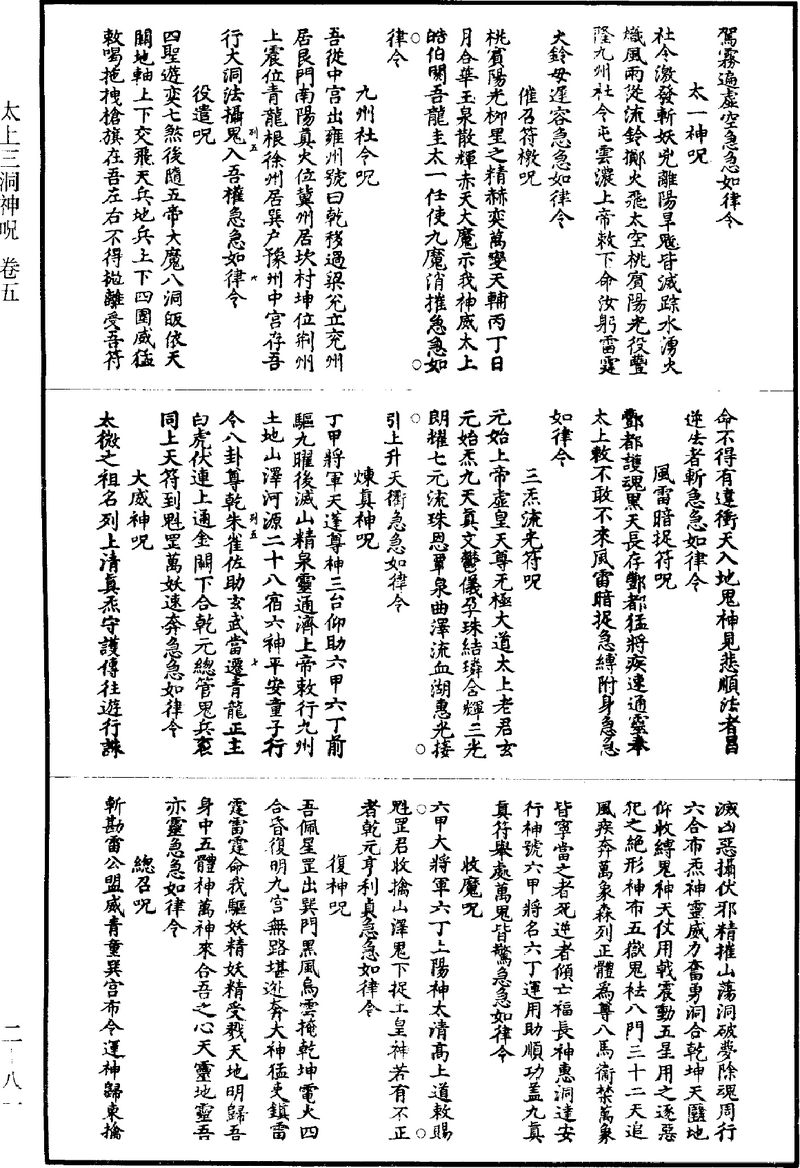 駕霧遍虛空急急如律令
太一神呪
社令激發斬妖兇離陽旱魃皆滅踪水湧火
熾風雨從流鈴擲火飛太空桃賓陽光役豐
隆九州社令屯雲濃上帝敕下命汝躬雷霆
火鈴毋遲容急急如律令
催召符檄呪
桃賓陽光柳里之精赫奕萬變天輔丙丁日
月合華玉泉散輝赤天大魔示我神威太上
皓伯闕吾龍圭太一任使九魔消摧急急如
律令
九州社令呪
吾從中宮出雍州號曰乾移過梁兌立兗州
居艮門南陽真火位冀州居坎村坤位荊州
上震位青龍根徐州居巽戶豫州中宮存吾
行大洞法攝鬼入吾權急急如律令
役遣呪
四聖遊奕七煞後隨五帝大魔八洞皈依天
關地軸上下交飛天兵地兵上下四圍威猛
敕喝拖拽槍旗在吾左右不得拋離受吾符
命不得有違衝天入地鬼神見悲順法者昌
逆法者斬急急如律令
風雷暗捉符呪
酆都護魂黑天長存酆都猛將疾速通靈奉
太上敕不敢不來風雷暗捉急縛附身急急
如律令
三炁流光符呪
元始上帝虛皇天尊无極大道太上老君玄
元始炁九天真文鬱儀孕珠結璘含輝三光
朗耀七元流珠恩覃泉曲澤流血湖惠光接
引上升天衢急急如律令
煉真神呪
丁甲將軍天蓬尊神三台仰助六甲六丁前
驅九曜後滅山精泉靈通濟上帝敕行九州
土地山澤河源二十八宿六神平安童子行
令八卦尊乾朱雀佐助玄武當遷青龍正主
白虎伏連上通金闕下合乾元總管鬼兵衮
同上天符到魁罡萬妖速奔急急如律令
大威神呪
太微之祖名列上清真炁守護傳往遊行誅
滅凶惡攝伏邪精摧山蕩洞破夢除魂周行
六合布炁神靈威力奮勇洞合乾坤天醫地
仰收縛鬼神天仗用戟震動五星用之逐惡
犯之絕形神布五嶽鬼祛八門三十二天追
風疾奔萬象森列正體為尊八馬衛禁萬象
皆寧當之者死逆者傾亡福長神惠洞達安
行神號六甲將名六丁運用助順功蓋九真
真符舉處萬鬼皆驚急急如律令
收魔呪
六甲大將軍六丁上陽神太清高上道敕賜
魁罡君收擒山澤鬼下捉土皇神若有不正
者乾元亨利貞急急如律令
復神呪
吾佩星罡出巽門黑風烏雲掩乾坤電火四
合昏復明九宮無路堪逃奔大神猛吏鎮雷
霆雷霆命我驅妖精妖精受戮天地明歸吾
身中五體神萬神來合吾之心天靈地靈吾
亦靈急急如律令
總召呪
斬勘雷公盟威青童巽宮布令運神歸東擒
太上三洞神呪 卷五
二－八一